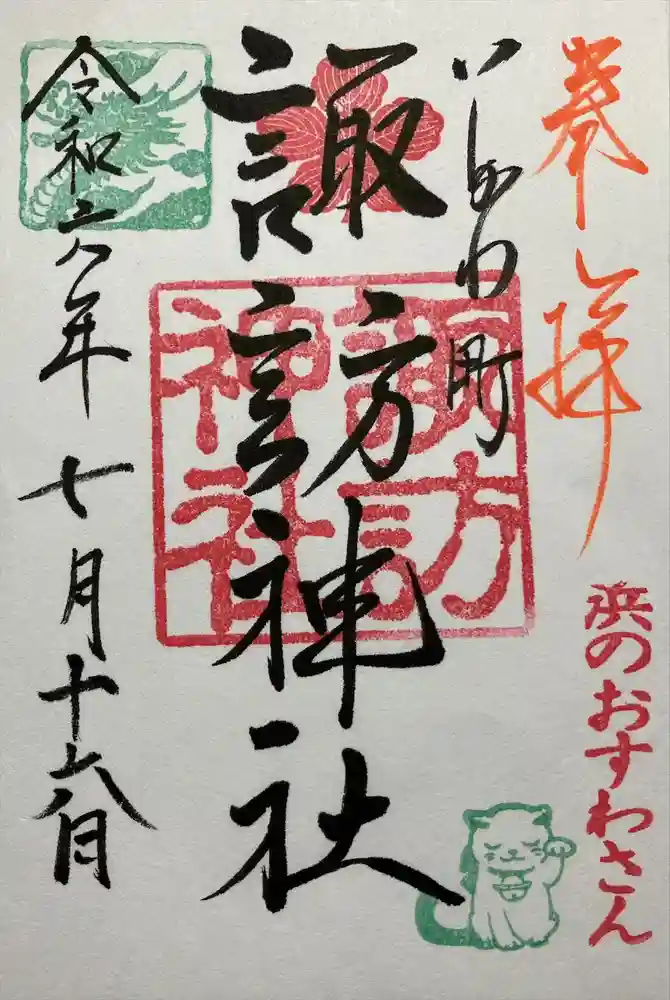 奉拝
浜のおすわさん
町
諏訪神社
諏訪
神社
令和六年七月十六日